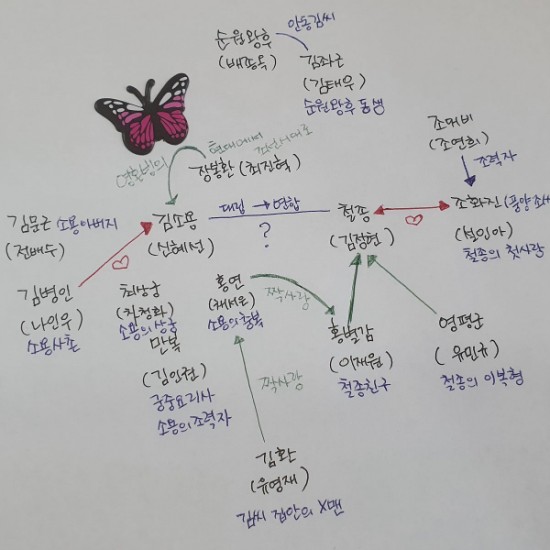 안동김씨
순원왕후
(배종옥)
김좌근
(김태우)
순원왕후 동생
조대비
(조연희)
조력자
현대에서
조선시대로
영혼빙의
장봉환 (최진혁)
김문근 소용아버지
(전배수)
김소용
(신혜선)
대립 → 연합
?
철종
(김정현)
조화진 (풍양조씨
(설인아)
철종의 첫사랑
김병인
(나인우)
소용사촌
최상궁
(차청화)
소용의 상궁
만복
(김인권)
궁중요리사
소용의 조력자
홍연
(채서은)
소용의 충복
짝사랑
홍별감
(이재원)
철종친구
영평군
(유민규)
철종의 이복형
짝사랑
김환
(유영재)
김씨 집안의 X맨